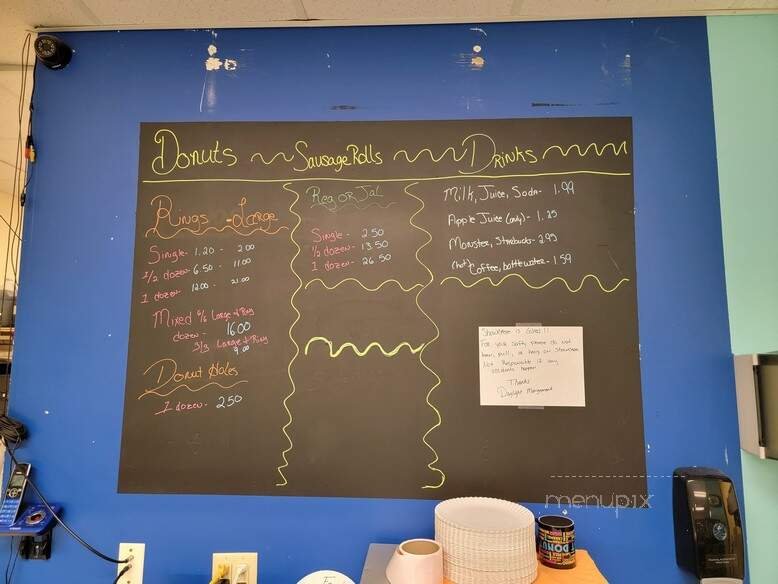 Donuts
Sausage Rolls
Drinks
Rings - Large
Single - 1.20 - 2.00
1/2 dozen - 6.50 - 11.00
1 dozen - 12.00 - 21.00
Mixed 6/6 Large & Ring
dozen - 16.00
3/3 Large & Ring
9.00
Donut Holes
1 dozen - 2.50
Reg OR Jal
Single - 2.50
1/2 dozen - 13.50
1 dozen - 26.50
Milk, Juice, Soda - 1.99
Apple Juice (only) - 1.25
Monster, Starbucks - 2.95
(hot) Coffee, bottle water - 1.59
Showcase is Glass!!
For your safty please do not
lean, pull, or hang on Showcase
Not Responsible if any
accidents happen
Thanks
Daylight Management
menupix
DONUT